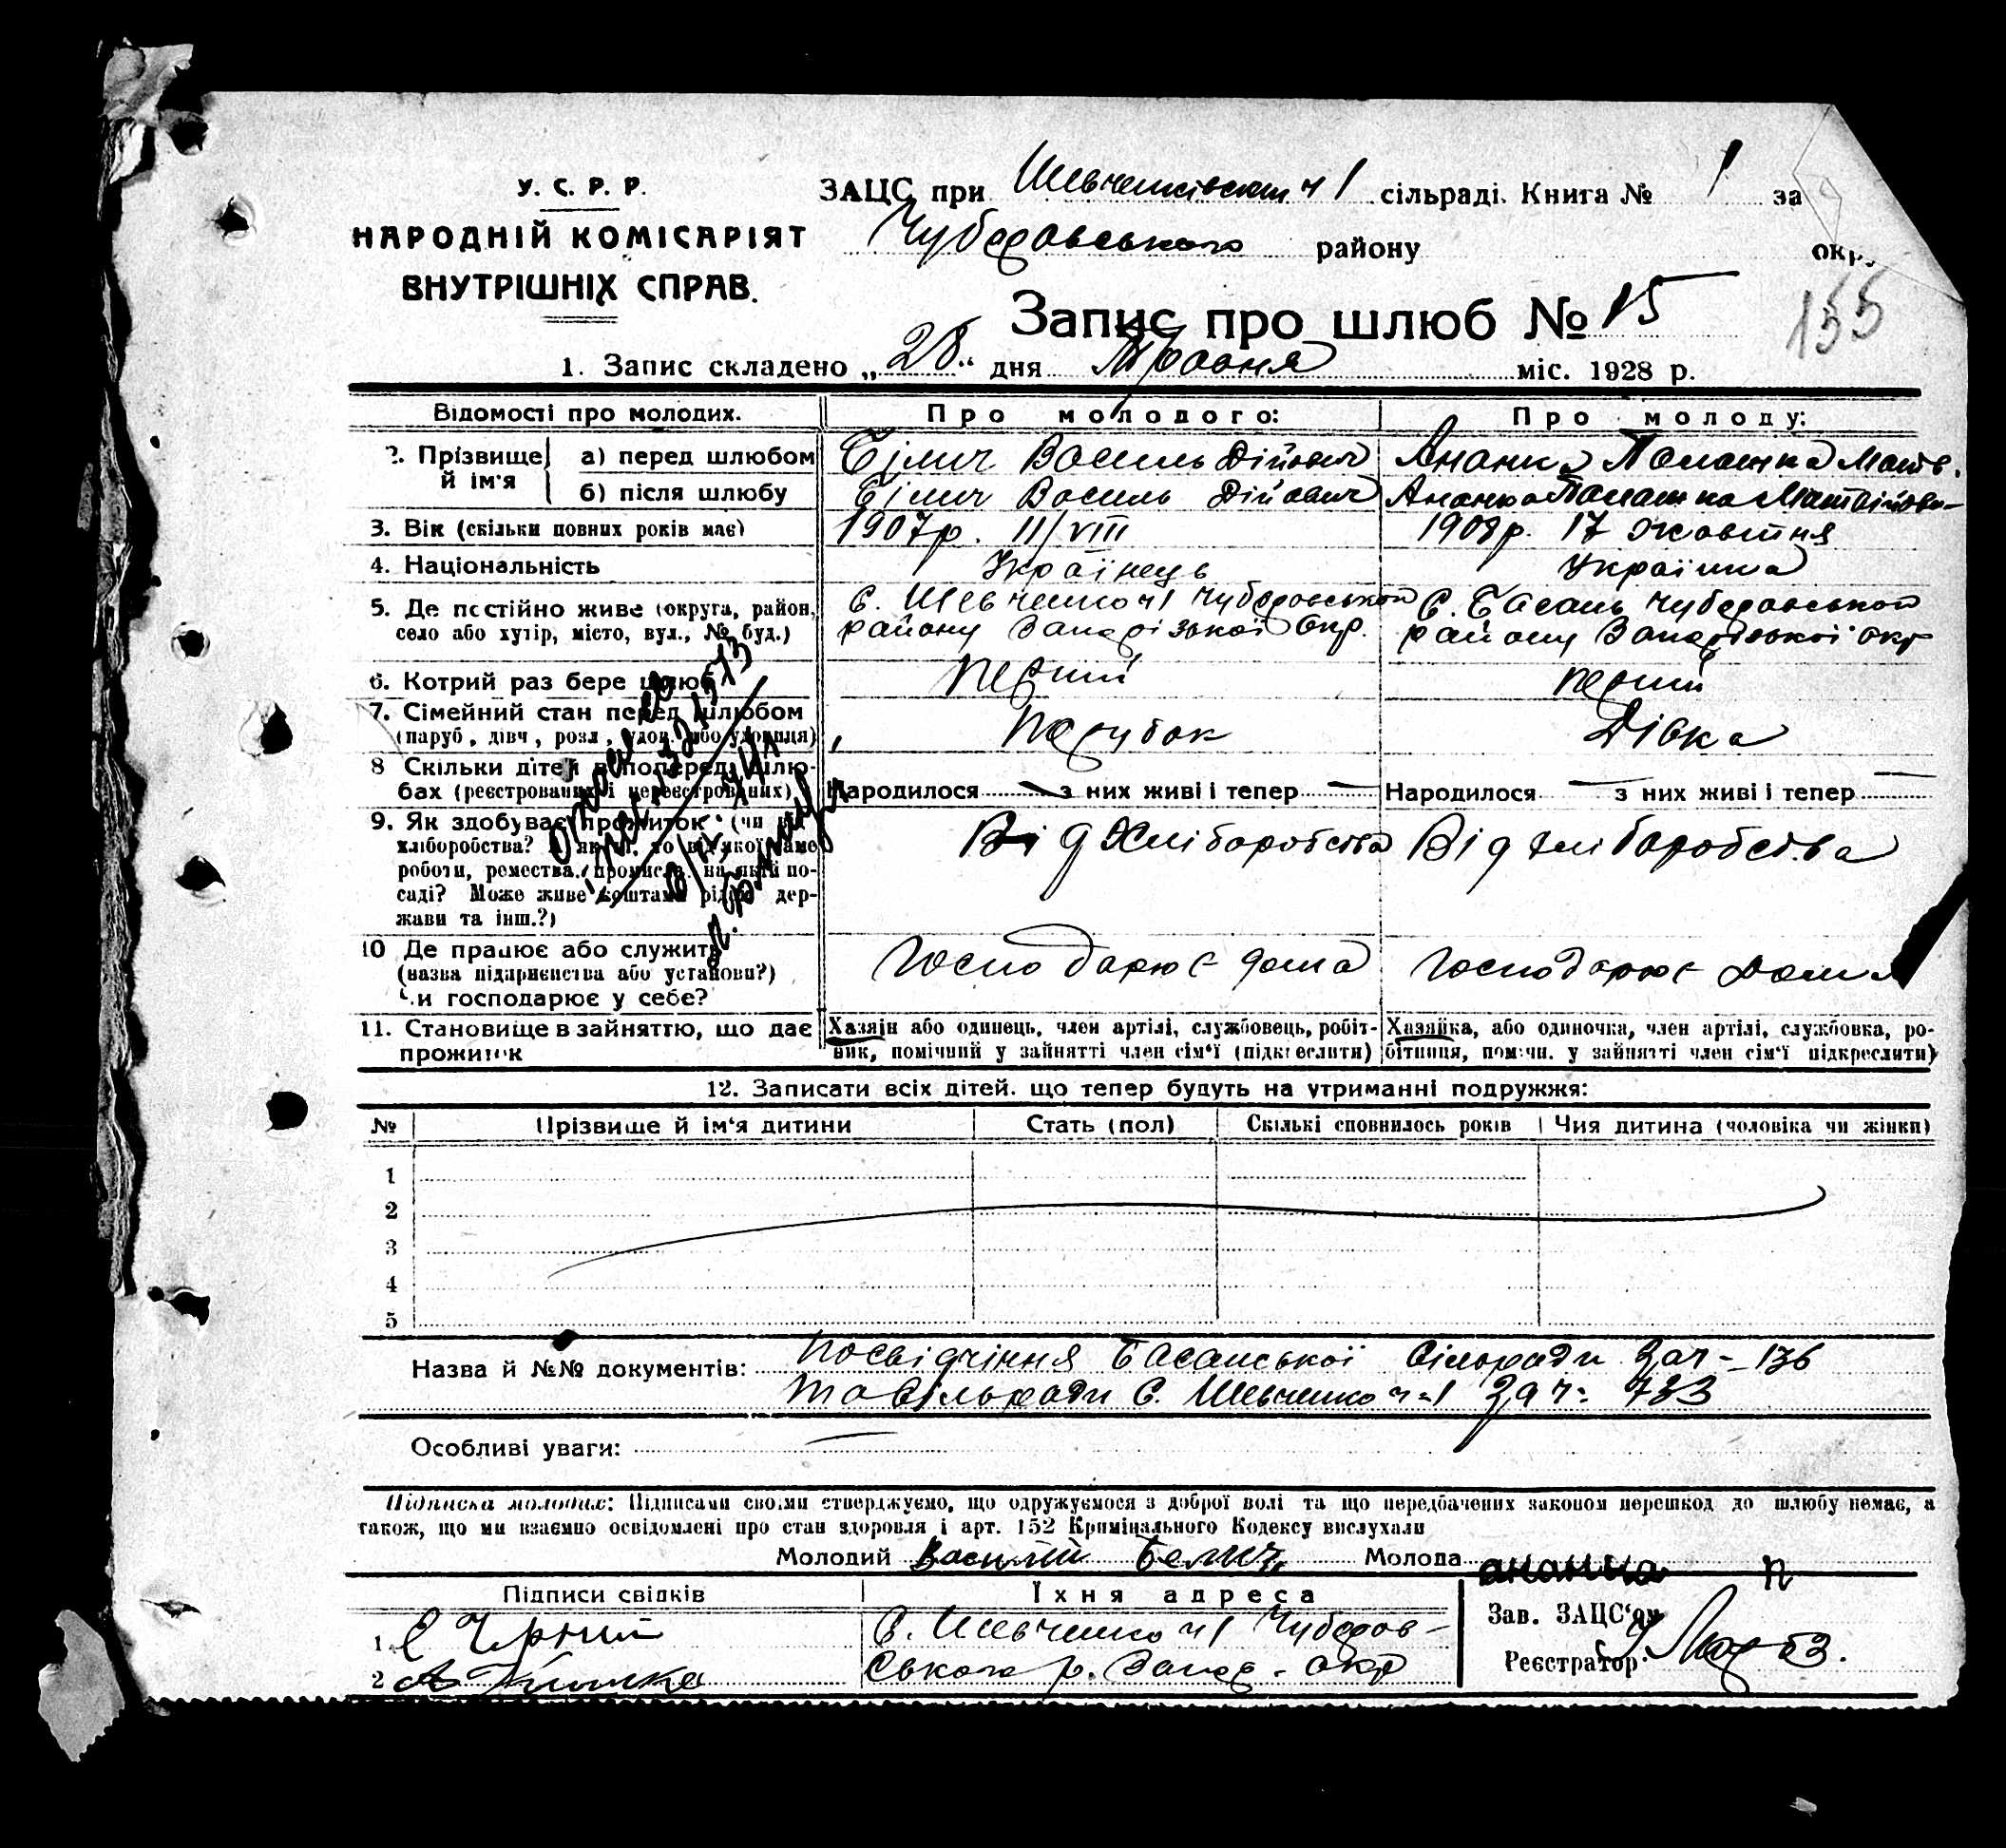 У. С. Р. Р.
НАРОДНІЙ КОМІСАРІЯТ
ВНУТРІШНІХ СПРАВ.
ЗАЦС при Шевченківском ч 1 сільраді. Книга № 1 за
Чубаровського району окр
Запис про шлюб № 15
155
1. Запис складено „28“ дня Травня міс. 1928 р.
Відомості про молодих. Про молодого: Про молоду:
2. Прізвище й ім'я
а) перед шлюбом Білич Василь Дійович Ананка Палашка Матв.
б) після шлюбу Білич Василь Дійович Ананка Палашка Матвійовн-
3. Вік (скільки повних років має) 1907р. 11/VIII 1908р. 17 Жовтня
4. Національність Українець Українка
5. Де постійно живе (округа, район, село або хутір, місто, вул., № буд.)
с. Шевченко ч1 Чубаровськой району Запорізької Окр.
С. Басань Чубаровськой району Запорізької окр
6. Котрий раз бере шлюб перший перший
7. Сімейний стан перед шлюбом (паруб., дівч., розл., удов. або удовиця) Парубок Дівка
8 Скільки дітей в попередн. шлюбах (реєстрованих і нереєстрованих)
Народилося — з них живі і тепер — Народилося — з них живі і тепер —
9. Як здобуває прожиток (чи від хліборобства? роботи, ремества, на якій посаді? Може живе коштами рідні, держави та інш.?)
Від Хліборобства Від хліборобства
10 Де працює або служить (назва підприємства або установи?) Чи господарює у себе?
Господарює дома Господарює дома
11. Становище в зайняттю, що дає прожиток
Хазяїн або одинець, член артілі, службовець, робітник, помічний у зайнятті член сім'ї (підкреслити)
Хазяйка, або одиночка, член артілі, службовка, робітниця, помічн. у зайнятті член сім'ї підкреслити)
12. Записати всіх дітей. що тепер будуть на утриманні подружжя:
№ Прізвище й ім'я дитини Стать (пол) Скількі сповнилось років Чия дитина (чоловіка чи жінки)
1
2
3
4
5
Назва й №№ документів: Посвідчіння Басанської Сільради за ч- 136
та Сільради С. Шевченко ч-1 за ч: 733
Особливі уваги: —
Підписка молодих: Підписами своїми стверджуємо, що одружуємося з доброї волі та що передбачених законом перешкод до шлюбу немає, а
також, що ми взаємно освідомлені про стан здоровля і арт. 152 Кримінального Кодексу вислухали
Молодий Василий Белич Молода ананка п
Підписи свідків Їхня адреса
1. Є Чрний С. Шевченко ч1 Чубаров-
2 ського р. Запор. окр
Зав. ЗАЦС'ом
Реєстратор